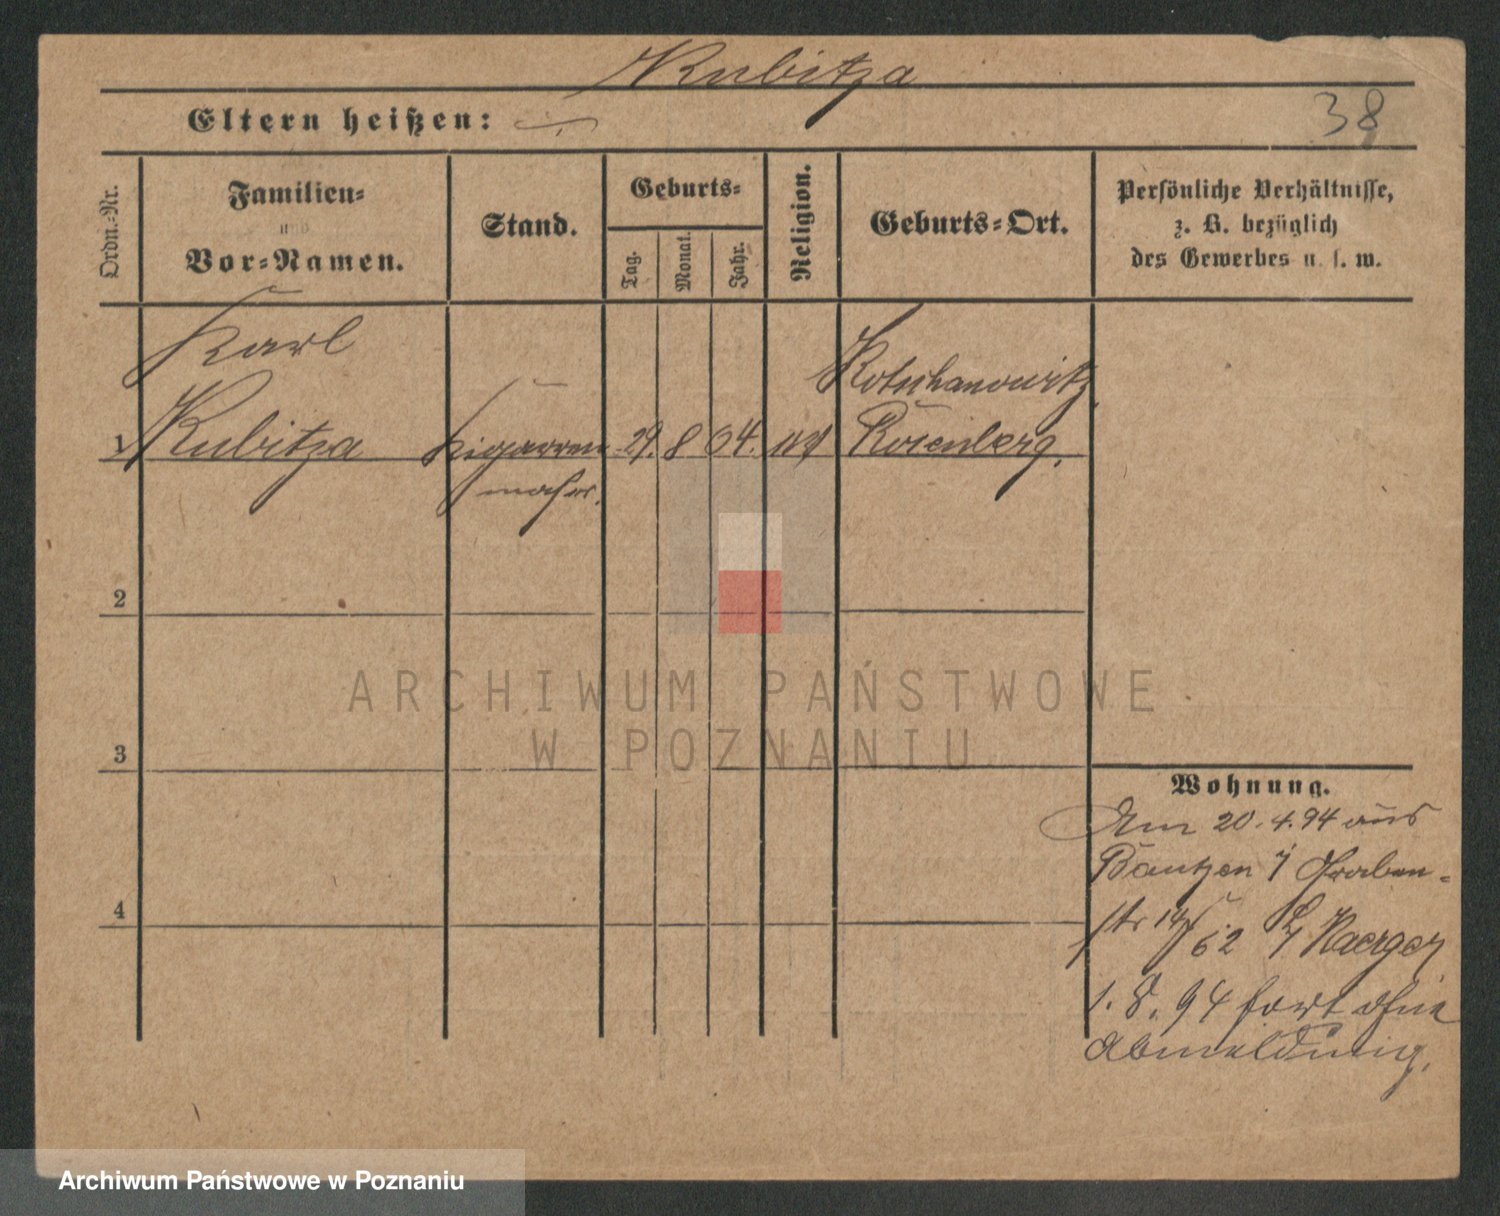 Kubitza
Eltern heißen:
38
Ordn.=Nr.
Familien=
und
Vor=Namen.
Stand.
Geburts=
Tag.
Monat.
Jahr.
Religion.
Geburts=Ort.
Persönliche Verhältnisse,
z. B. bezüglich
des Gewerbes u. s. w.
Karl
1 Kubitza
Zigarren
macher.
29. 8 64.
Kotschanowitz,
Rosenberg.
2
3
4
ARCHIWUM PAŃSTWOWE
W POZNANIU
Wohnung.
Am 20. 4. 94 aus
Bautzen Graben=
str 14 62
1. 8. 94 fort ohne
Abmeldung.
Archiwum Państwowe w Poznaniu